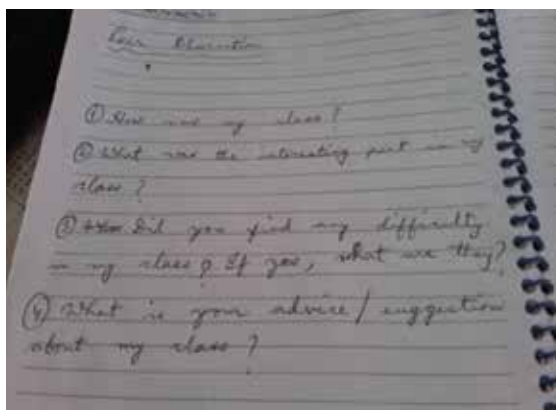 ① How was my class?
② What was the interesting part in my
class?
③ Did you find my difficulty
in my class? If yes, what are they?
④ What is your advice/suggestion
about my class?